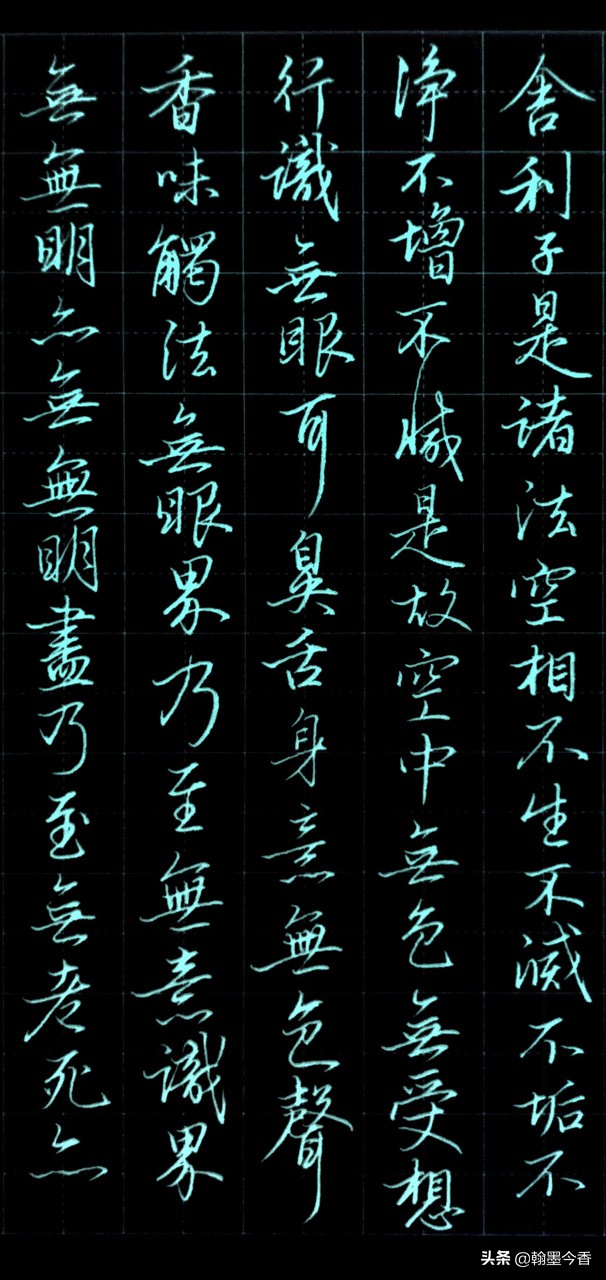 舍利子是諸法空相不生不滅不垢不
淨不增不減是故空中無色無受想
行識無眼耳鼻舌身意無色聲
香味觸法無眼界乃至無意識界
無無明亦無無明盡乃至無老死亦
头条 @翰墨今香